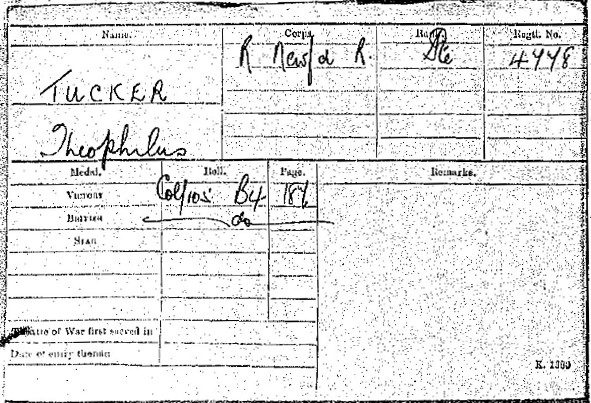 Name. Corps. Rank. Regtl. No.
R Newfd R. Pte 4448
TUCKER
Theophilus
Medal. Roll. Page. Remarks.
VICTORY Col/105 B4 187
BRITISH do
STAR
Theatre of War first served in
Date of entry therein
K. 1380